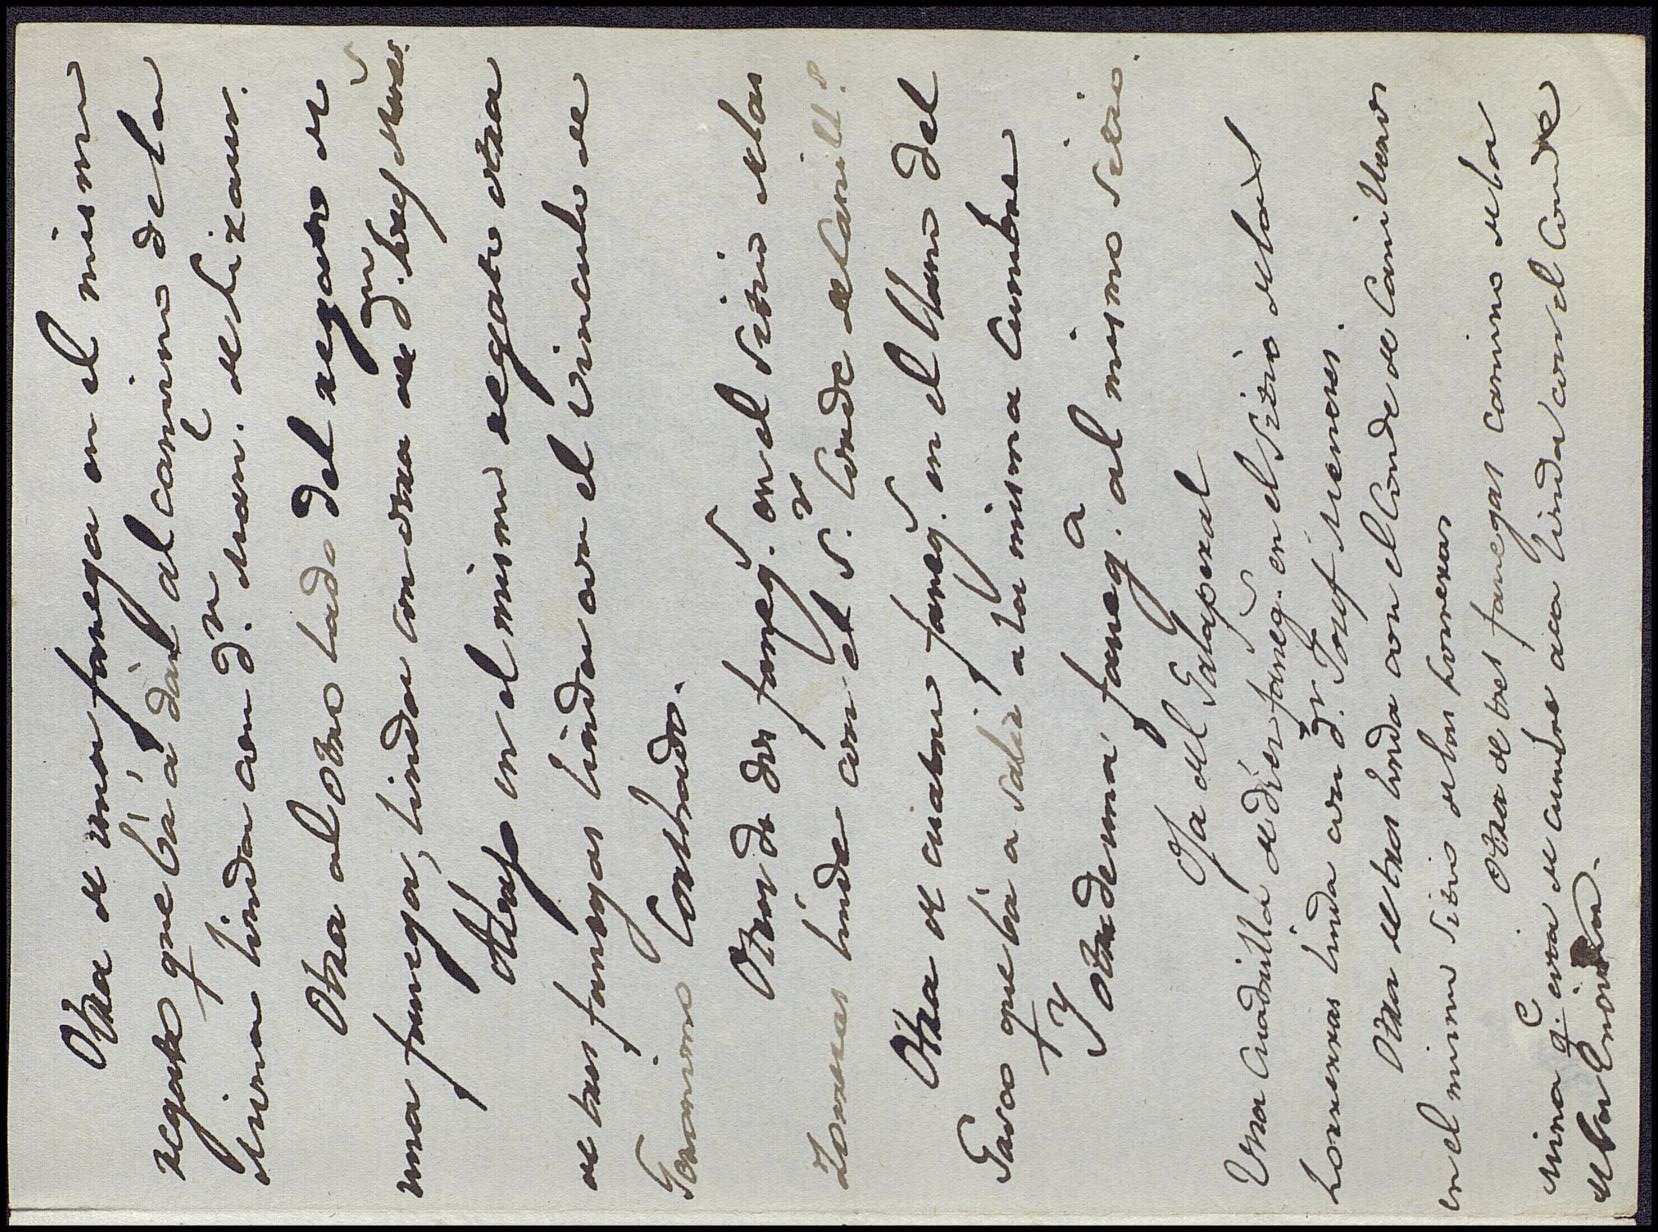 Otra de una fanega en el mismo
regato que bá a dar al camino de la
Mina linda con d.n Man.l de Lizaur.
Otra al otro lado del regato de
una fanega, linda con otra de d.n Josef
Atras en el mismo regato otra
de tres fanegas linda con el vinculo de
Geronimo Contrado.
Otra de dos faneg.s en el sitio de las
Zorreras linda con el S.r Conde de Canill.s
Otra de cuatro faneg.s en el llano del
que bá a salir a la misma cumbre
Y otra de una faneg.a al mismo sitio.
Oja del
Una cuadrilla de diez faneg.s en el sitio de las
Zorreras linda con d.n Josef Meneses.
Otra de tres linda con el Conde de Canilleros
en el mismo sitio de las porreras
Otra de tres fanegas camino de la
Mina q.e está de cumbre acá linda con el Conde
de la